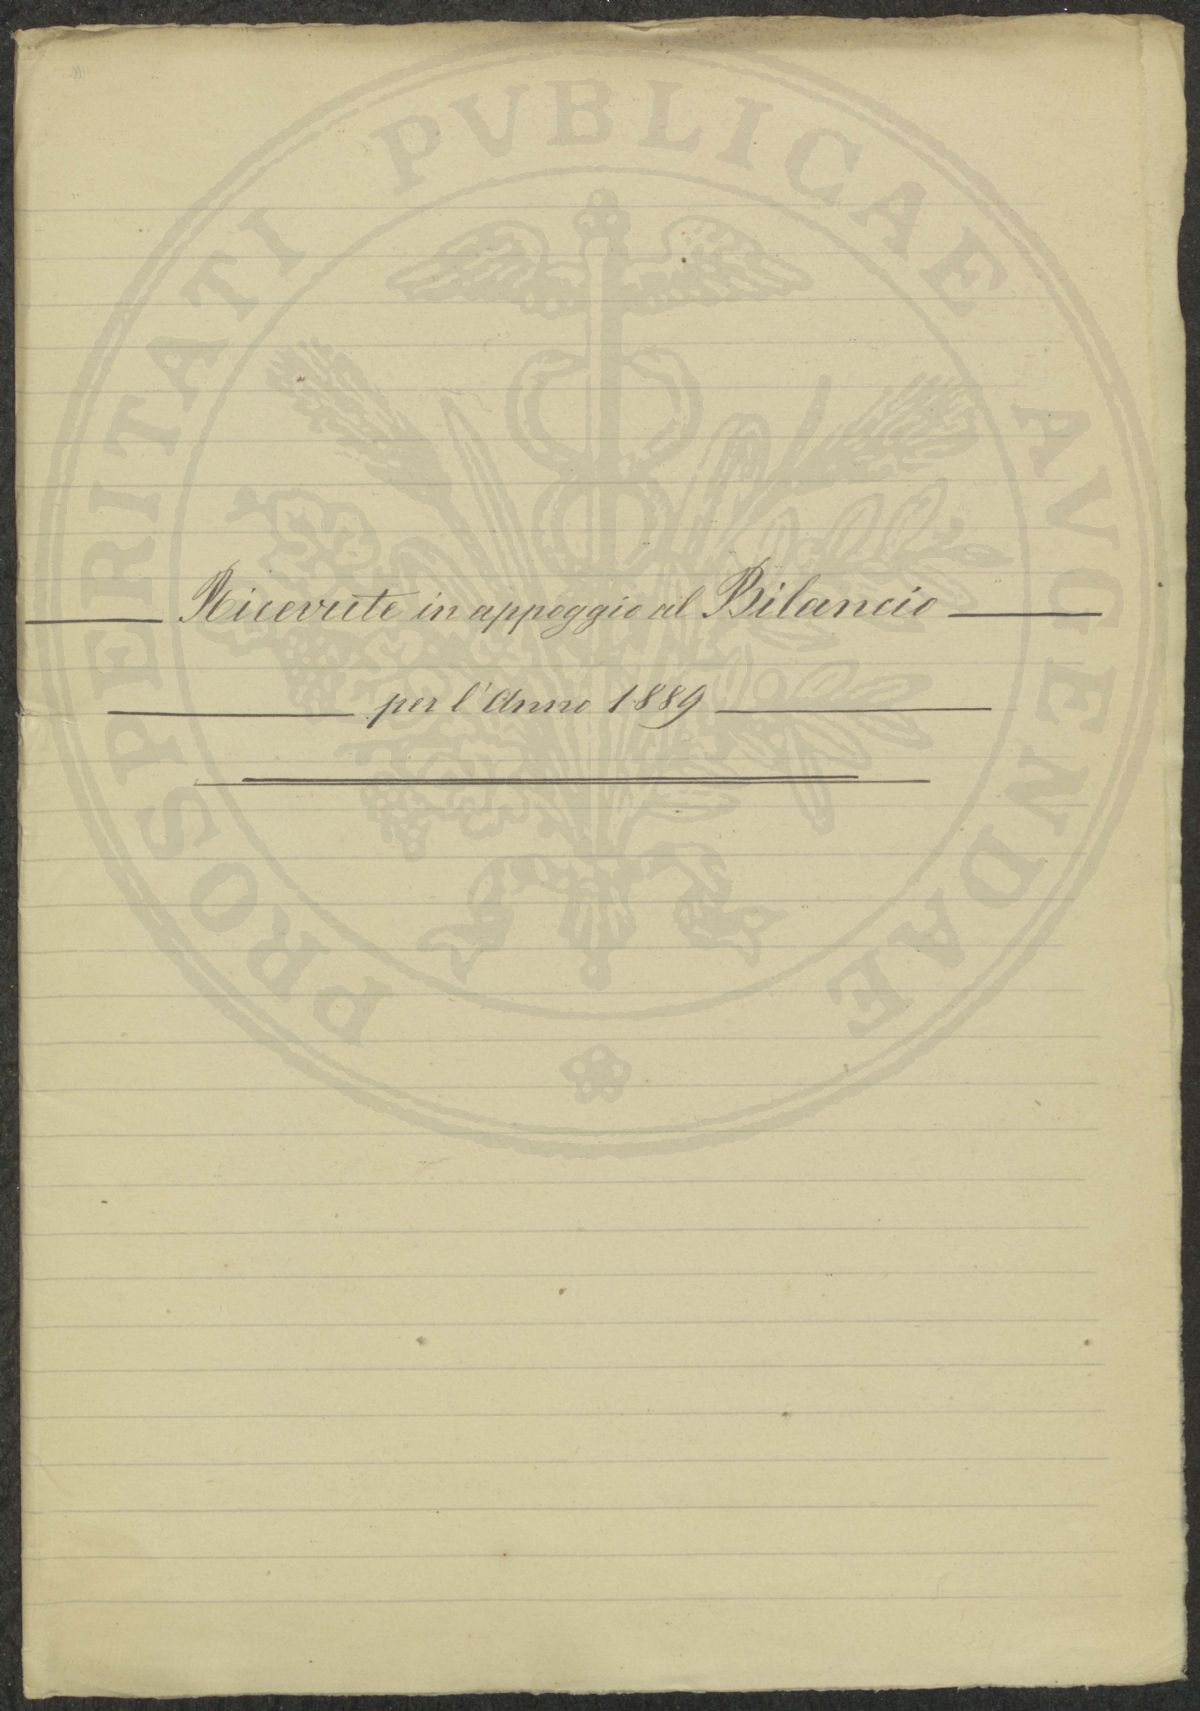 PROSPERITATI PVBLICAE AVGENDAE
Ricevute in appoggio al Bilancio
per l'Anno 1889